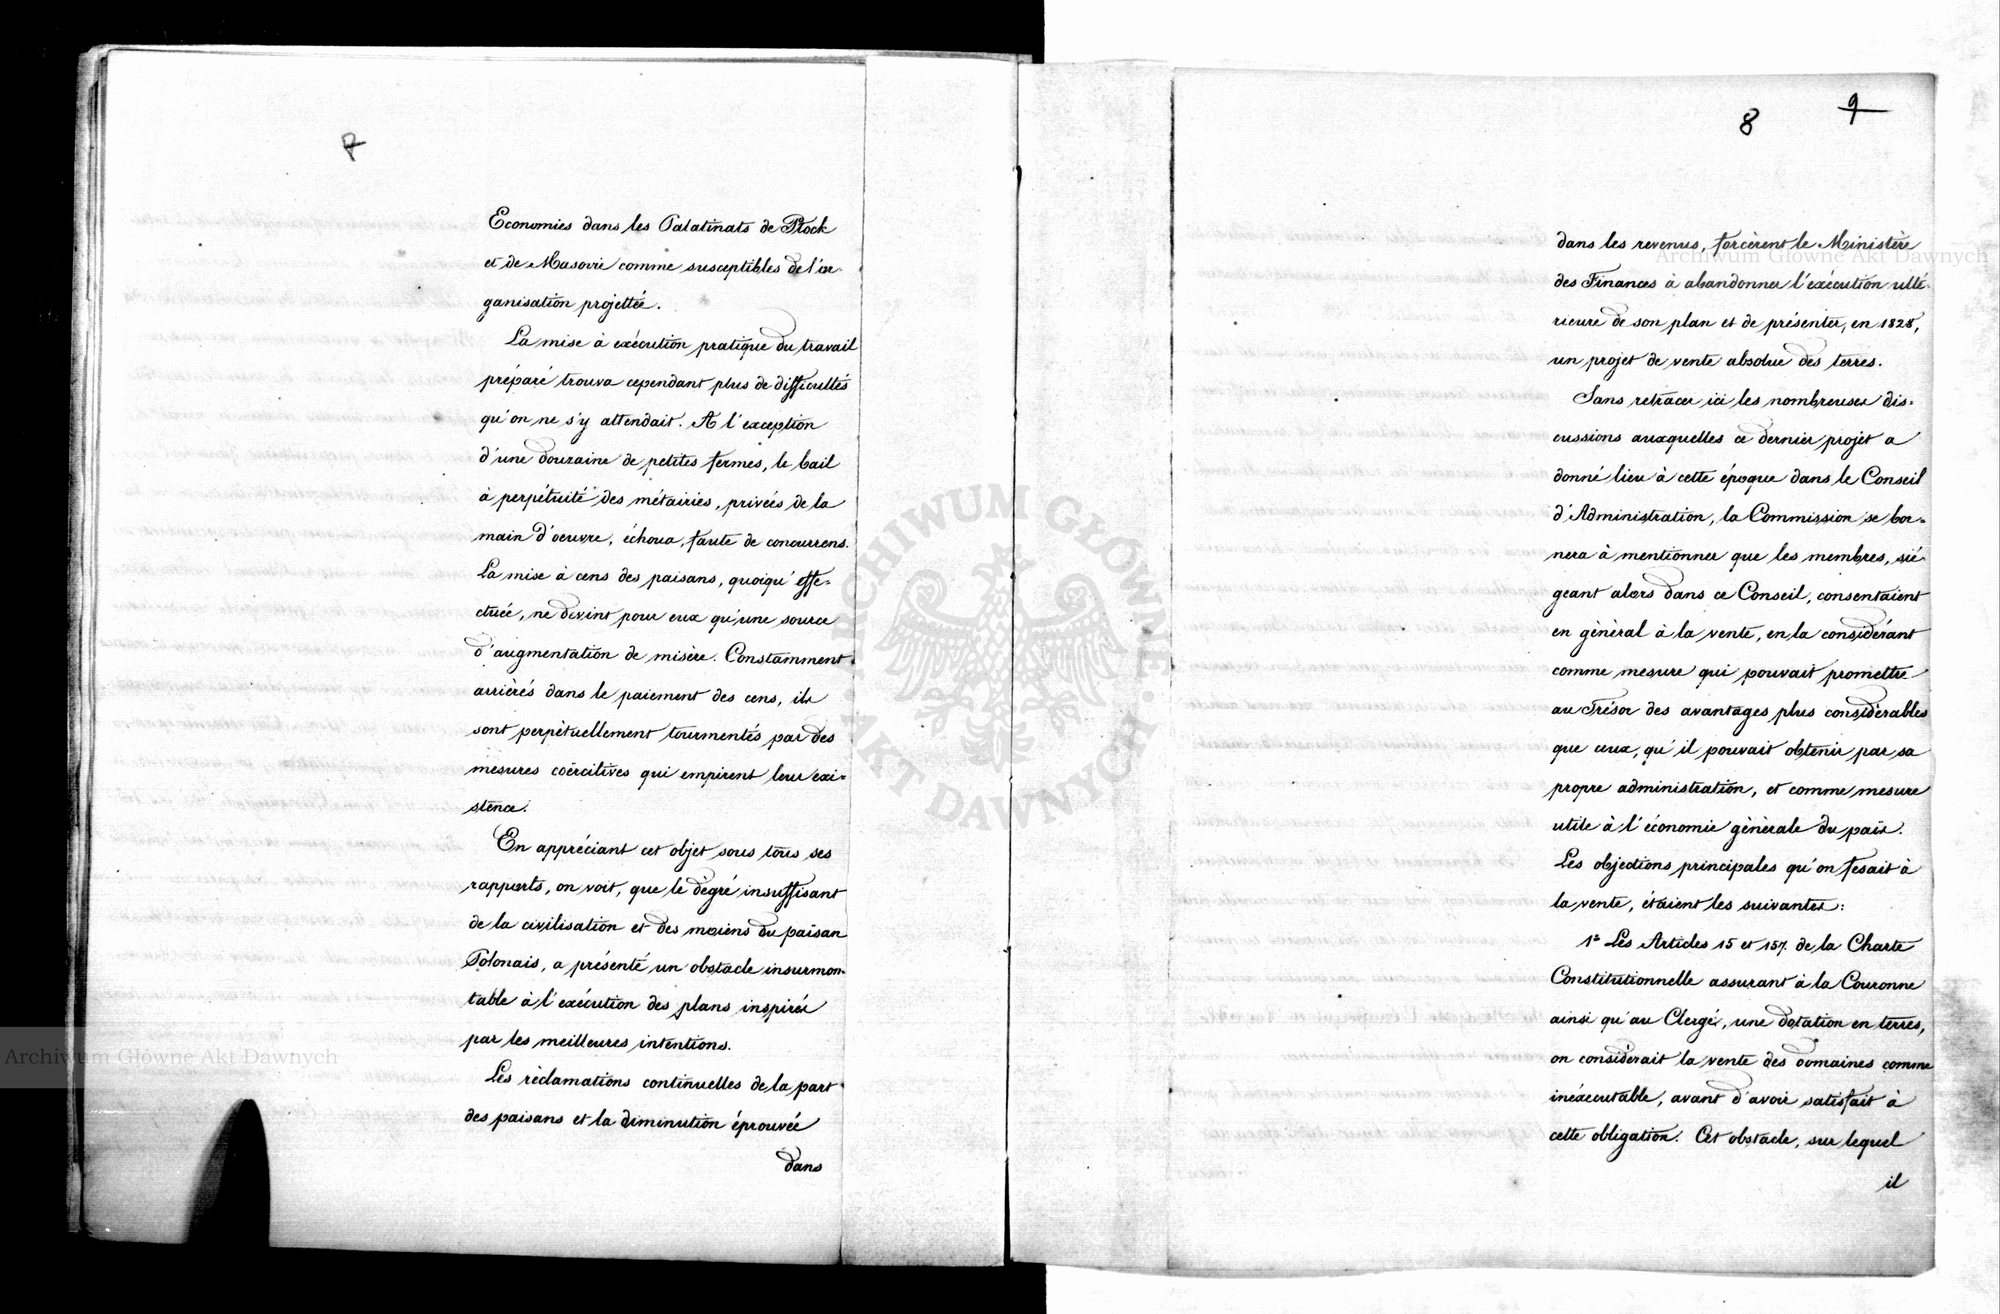 7
Economies dans les Palatinats de Płock
et de Masovie comme susceptibles de l'or-
ganisation projettée.
La mise à exécution pratique du travail
préparé trouva cependant plus de difficultés
qu'on ne s'y attendait. A l'exception
d'une douzaine de petites fermes, le bail
à perpétuité des métairies, privées de la
main d'oeuvre, échoua, faute de concurrens.
La mise à cens des paisans, quoiqu'effe-
ctuée, ne devint pour eux qu'une source
d'augmentation de misère. Constamment
arriérés dans le paiement des cens, ils
sont perpétuellement tourmentés par des
mesures coërcitives qui empirent leur exi-
stence.
En appréciant cet objet sous tous ses
rapports, on voit, que le dégré insuffisant
de la civilisation et des moiens du païsan
Polonais, a présenté un obstacle insurmon-
table à l'exécution des plans inspirés
par les meilleures intentions.
Les réclamations continuelles de la part
des paisans et la diminution éprouvée
dans
8 9
dans les revenus, forcèrent le Ministère
des Finances à abandonner l'exécution ulté-
rieure de son plan et de présenter, en 1828,
un projet de vente absolue des terres.
Sans retracer ici les nombreuses dis-
cussions auxquelles ce dernier projet a
donné lieu à cette époque dans le Conseil
d'Administration, la Commission se bor-
nera à mentionner que les membres, sié-
geant alors dans ce Conseil, consentaient
en général à la vente, en la considérant
comme mesure qui pouvait promettre
au Trésor des avantages plus considérables
que ceux, qu'il pouvait obtenir par sa
propre administration, et comme mesure
utile à l'économie générale du païs.
Les objections principales qu'on fesait à
la vente, étaient les suivantes:
1º Les Articles 15 et 157. de la Charte
Constitutionnelle assurant à la Couronne
ainsi qu'au Clergé, une dotation en terres,
on considérait la vente des domaines comme
inéxecutable, avant d'avoir satisfait à
cette obligation. Cet obstacle, sur lequel
il
ARCHIWUM GŁÓWNE AKT DAWNYCH
Archiwum Główne Akt Dawnych
Archiwum Główne Akt Dawnych